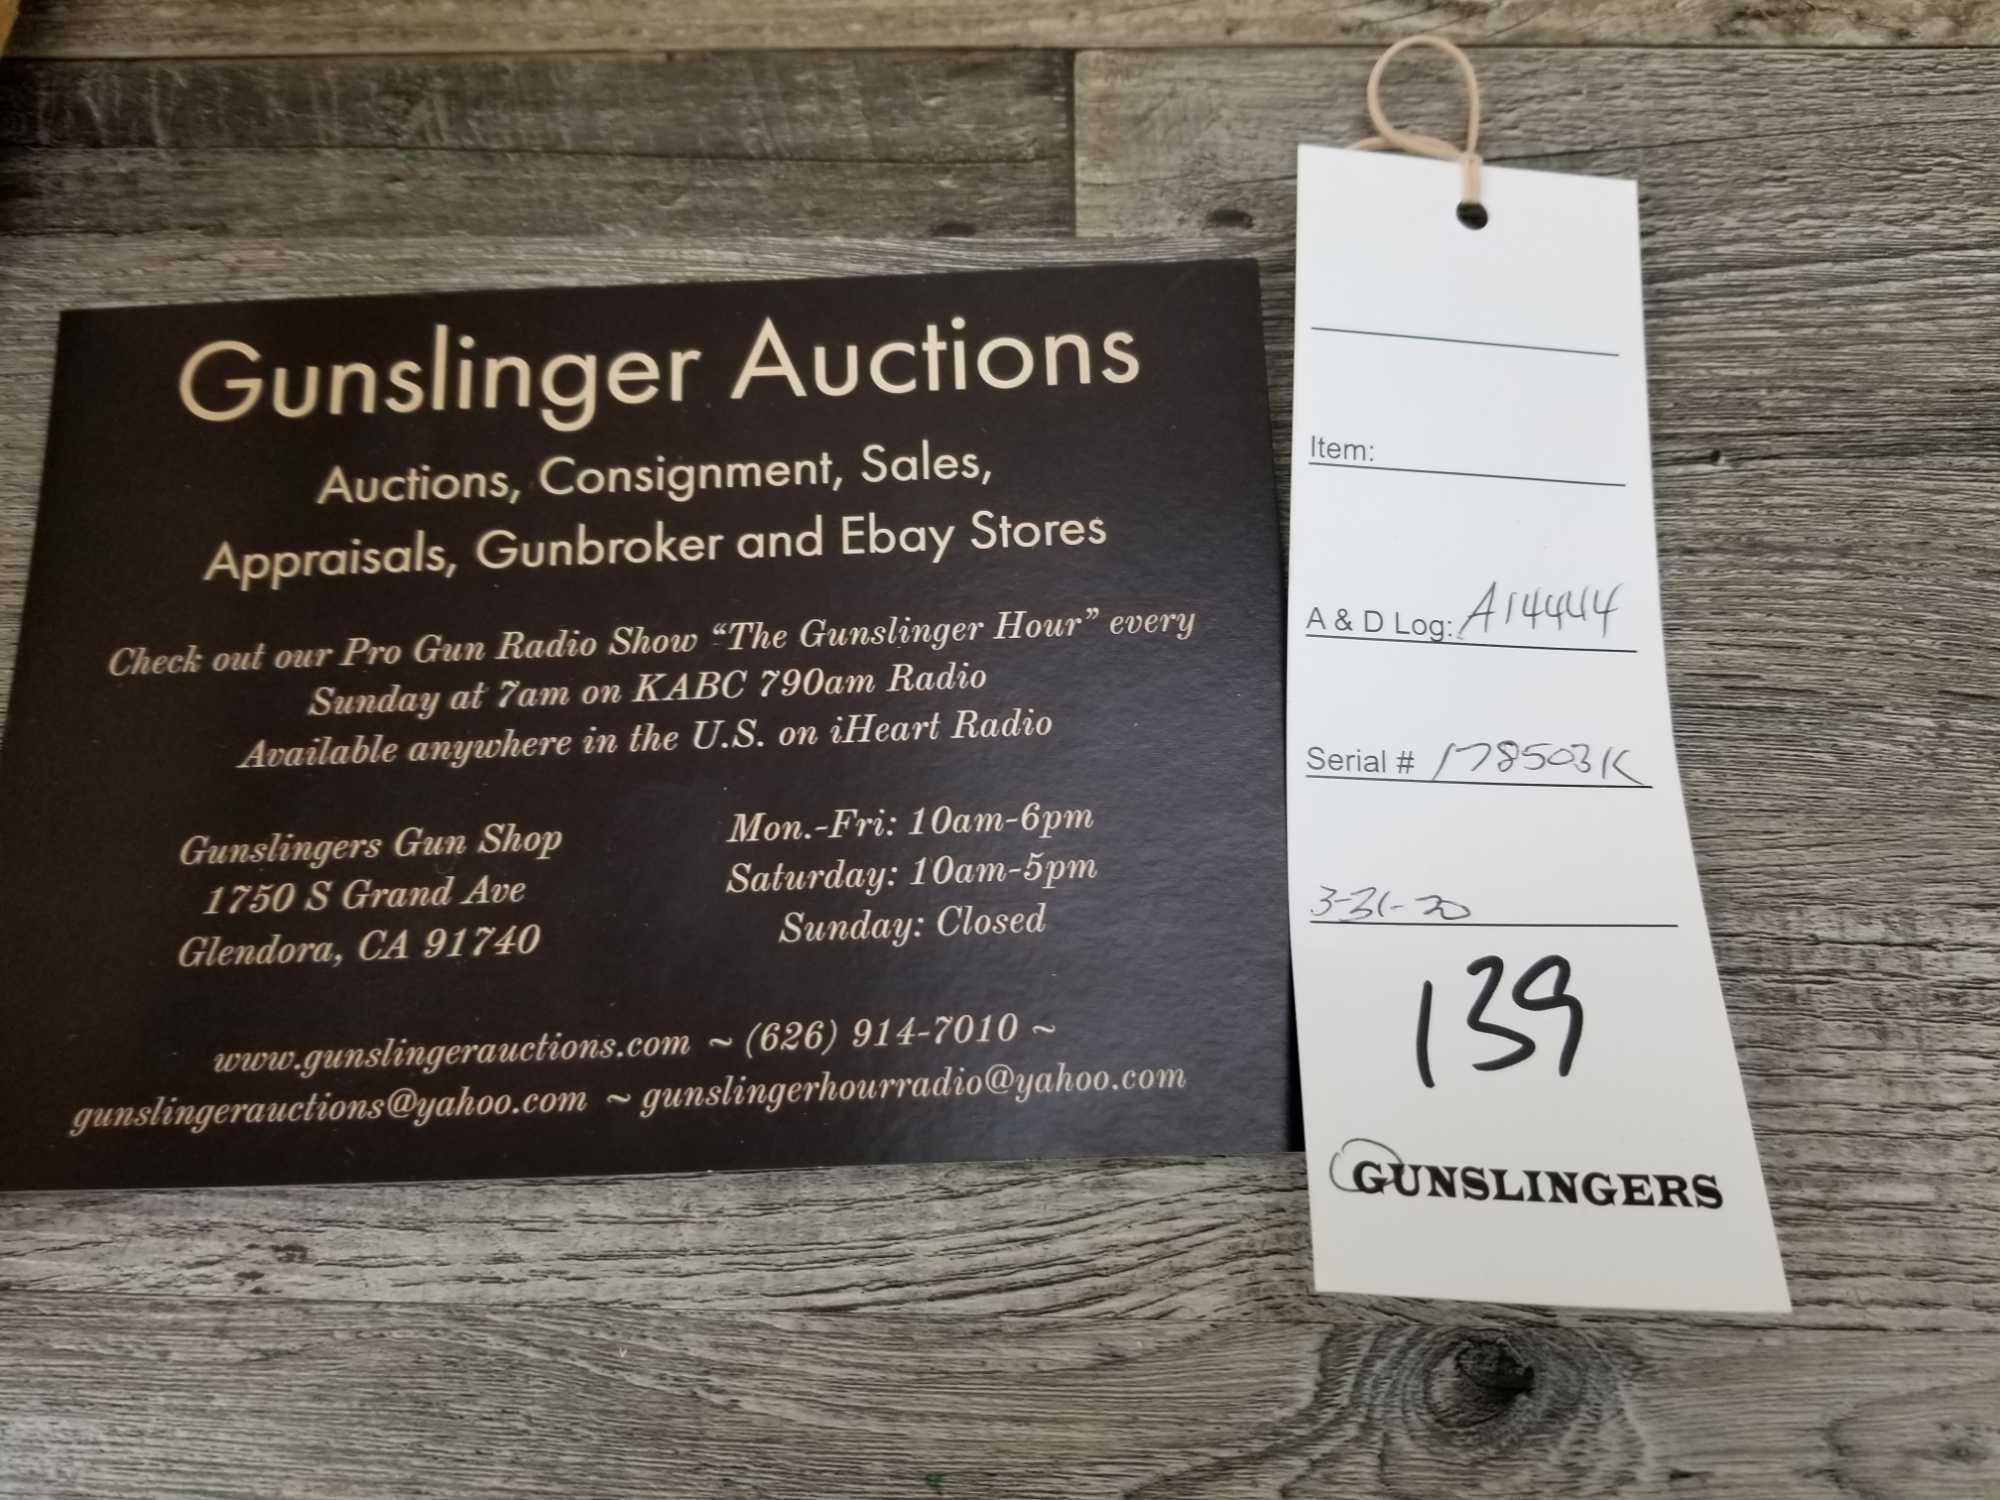 Gunslinger Auctions
Auctions, Consignment, Sales,
Appraisals, Gunbroker and Ebay Stores
Check out our Pro Gun Radio Show “The Gunslinger Hour” every
Sunday at 7am on KABC 790am Radio
Available anywhere in the U.S. on iHeart Radio
Gunslingers Gun Shop
1750 S Grand Ave
Glendora, CA 91740
Mon.-Fri: 10am-6pm
Saturday: 10am-5pm
Sunday: Closed
www.gunslingerauctions.com ~ (626) 914-7010 ~
gunslingerauctions@yahoo.com ~ gunslingerhourradio@yahoo.com
Item:
A & D Log: A14444
Serial # 178503K
3-31-20
139
GUNSLINGERS